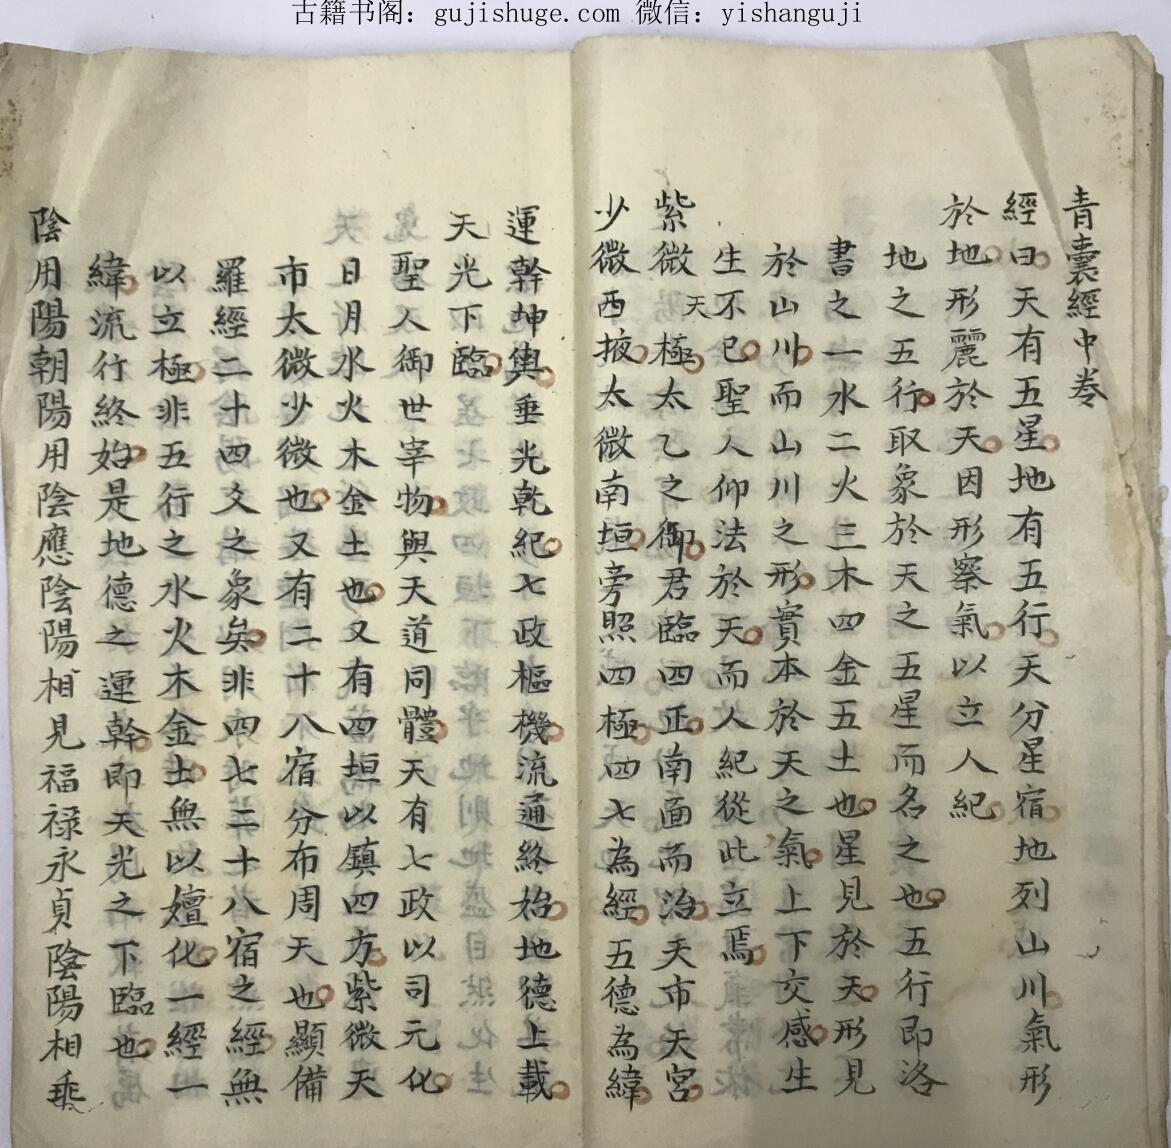 古籍书阁：gujishuge.com 微信：yishanguji
青囊經中卷
經曰天有五星地有五行天分星宿地列山川氣形
於地形麗於天因形察氣以立人紀
地之五行取象於天之五星而名之也五行即洛
書之一水二火三木四金五土也星見於天形見
於山川而山川之形實本於天之氣上下交感生
生不已聖人仰法於天而人紀從此立焉
紫微天極太乙之御君臨四正南面而治天市天宮
少微西掖太微南垣旁照四極四七為經五德為緯
運幹坤輿垂光乾紀七政樞機流通終始地德上載
天光下臨
聖人御世宰物與天道同體天有七政以司元化
日月水火木金土也又有四垣以鎮四方紫微天
市太微少微也又有二十八宿分布周天也顯備
羅經二十四爻之象矣非四七二十八宿之經無
以立極非五行之水火木金土無以嬗化一經一
緯流行終始是地德之運幹即天光之下臨也
陰用陽朝陽用陰應陰陽相見福祿永貞陰陽相乘